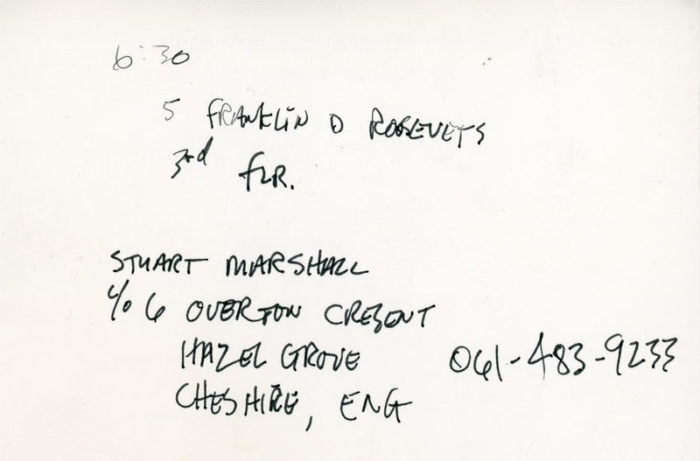 6:30
5 FRANKLIN D ROSEVETS
3rd FLR.
STUART MARSHALL
c/o 6 OVERTON CRESENT
HAZEL GROVE 061-483-9233
CHESHIRE, ENG